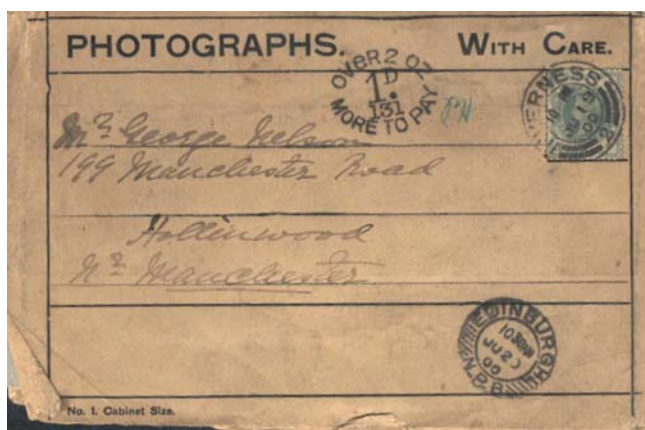 PHOTOGRAPHS. WITH CARE.
OVER 2 OZ
1D
131
MORE TO PAY
INVERNESS
JU 19
00
2
Mr George Nelson
199 Manchester Road
Hollinwood
Nr Manchester
EDINBURGH
1030PM
JU 20
00
N.P.B
No. 1. Cabinet Size.